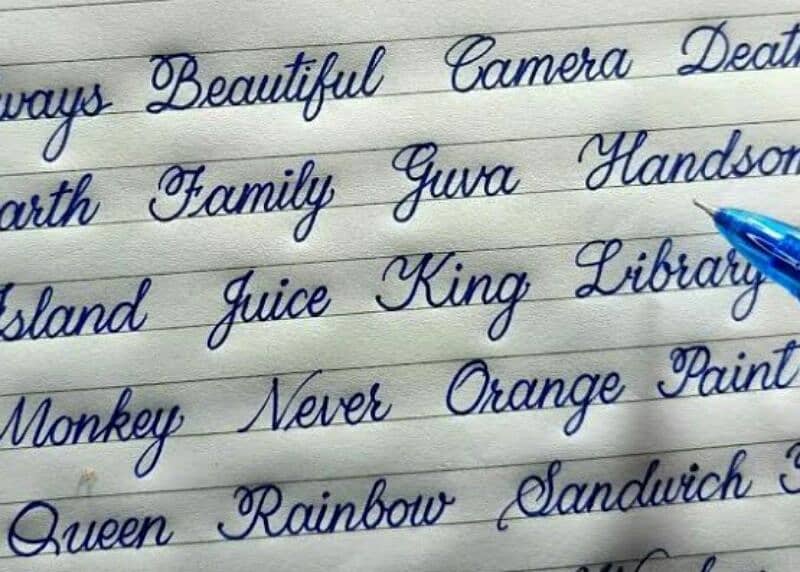 ways Beautiful Camera Death
arth Family Guva Handsom
Island Juice King Library
Monkey Never Orange Paint
Queen Rainbow Sandwich